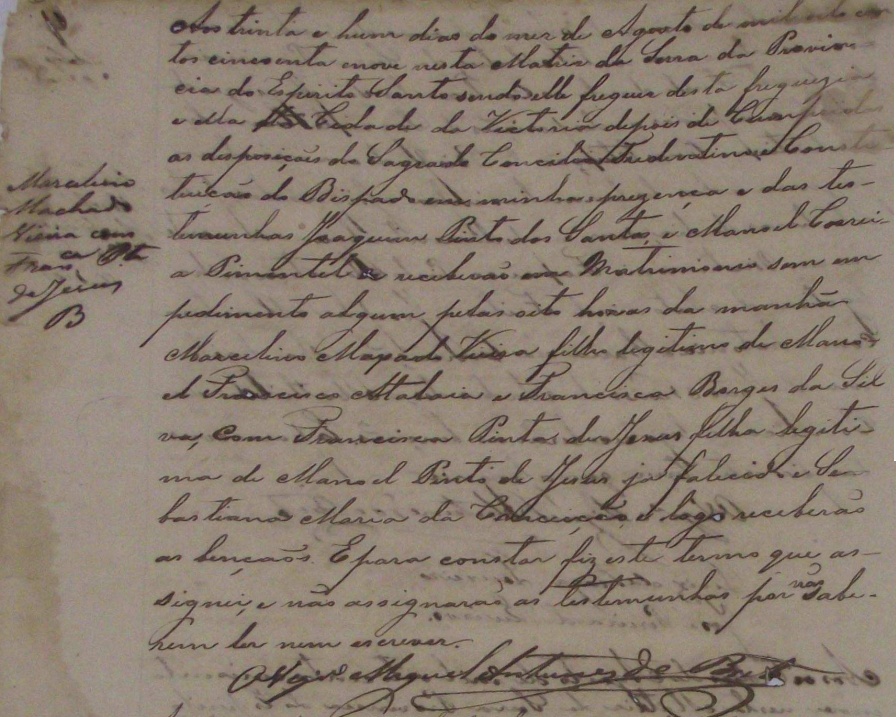 Marcelino
Machado
Vieira com
Fran ca Pta
de Jesus
B
Aos trinta e hum dias do mez de Agosto de mil oito cen
tos cincoenta e nove nesta Matriz da Serra da Provin
cia do Espirito Santo sendo elle freguez desta freguezia
e ella da Cidade da Victoria depois de Cumpridas
as disposições do Sagrado Concilio Tredentino e Consti
tuição do Bispado em minha prezença e das tes-
temunhas Joaquim Pinto dos Santos, e Manoel Correi-
a Pimentel se receberão em Matrimonio sem em
pedimento algum pelas oito horas da manhãa
Marcelino Maxado Vieira filho legitimo de Mano-
el Francisco Malaia e Francisca Borges da Sil
va, Com Francisca Pinta de Jesus filha legiti-
ma de Manoel Pinto de Jesus ja falecido e Se
bastiana Maria da Conceição e logo receberão
as bençãos. E para constar fiz este termo que as-
signei, e não assignarão as testemunhas por não sabe-
rem ler nem escrever.
Miguel Antunes de Brito